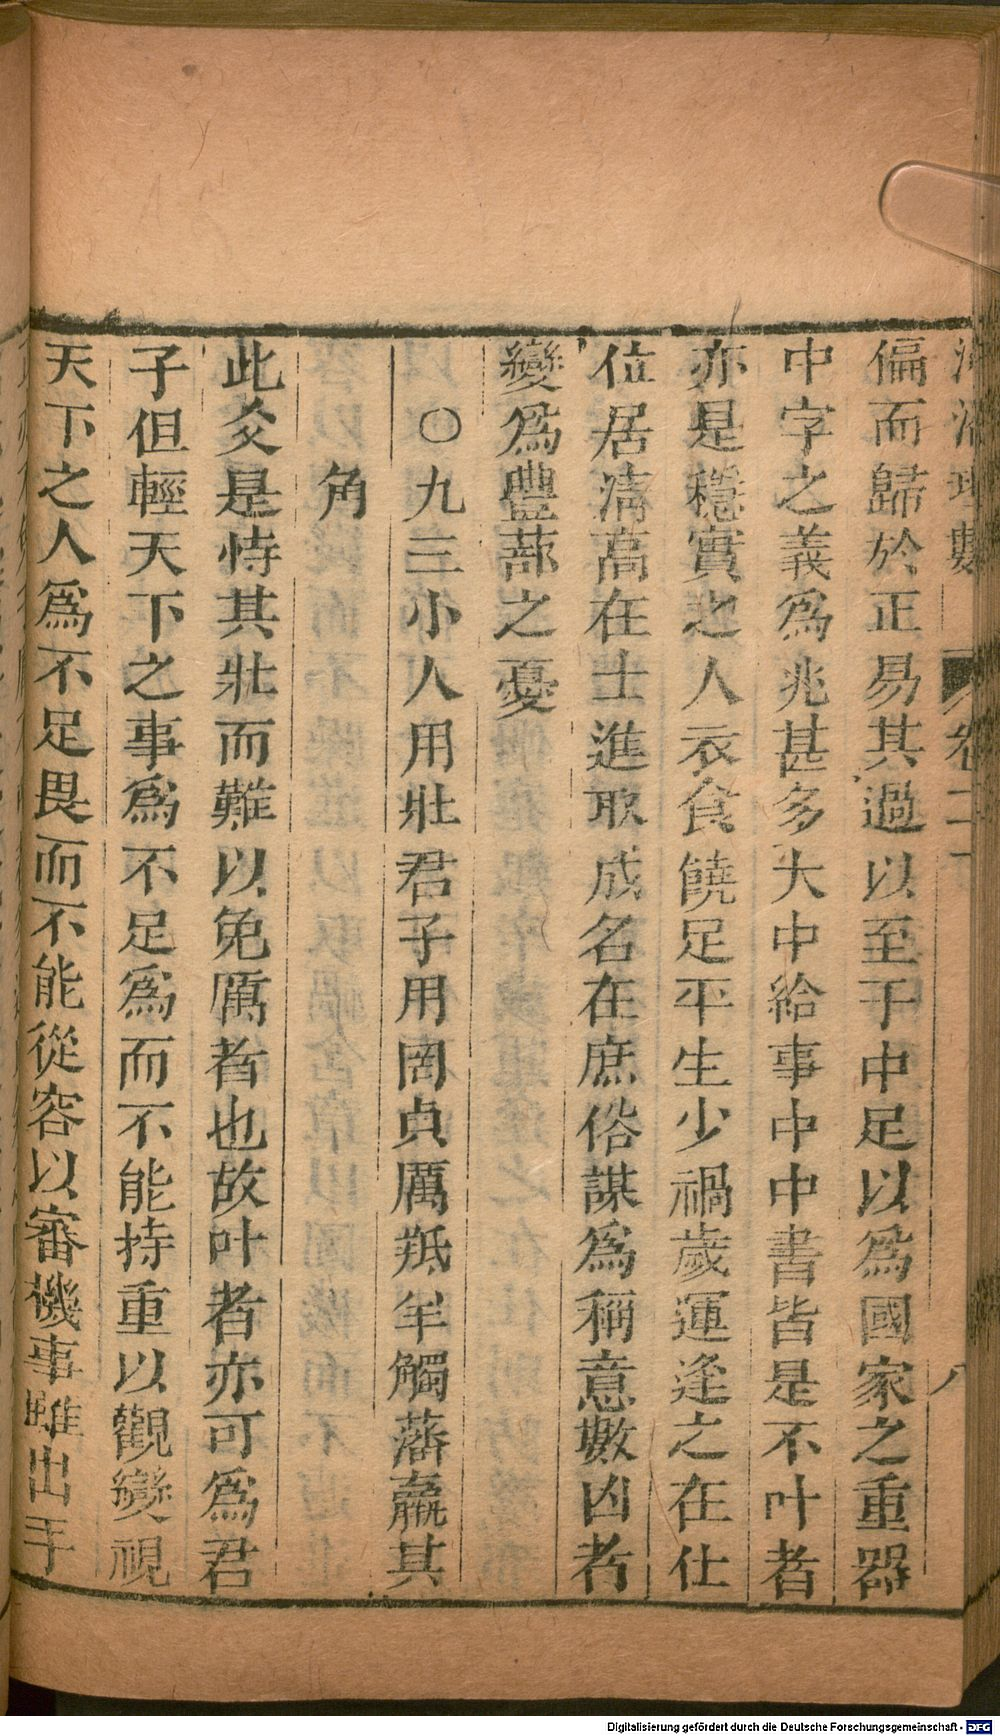 河洛理數 卷二 八
偏而歸於正易其過以至于中足以爲國家之重器
中字之義爲兆甚多大中給事中中書皆是不叶者
亦是穩實之人衣食饒足平生少禍歲運逢之在仕
位居清高在士進取成名在庶俗謀爲稱意數凶者
變爲豐蔀之憂
〇九三小人用壯君子用罔貞厲羝羊觸藩羸其
角
此爻是恃其壯而難以免厲者也故叶者亦可爲君
子但輕天下之事爲不足爲而不能持重以觀變視
天下之人爲不足畏而不能從容以審機事雖出于
Digitalisierung gefördert durch die Deutsche Forschungsgemeinschaft - DFG